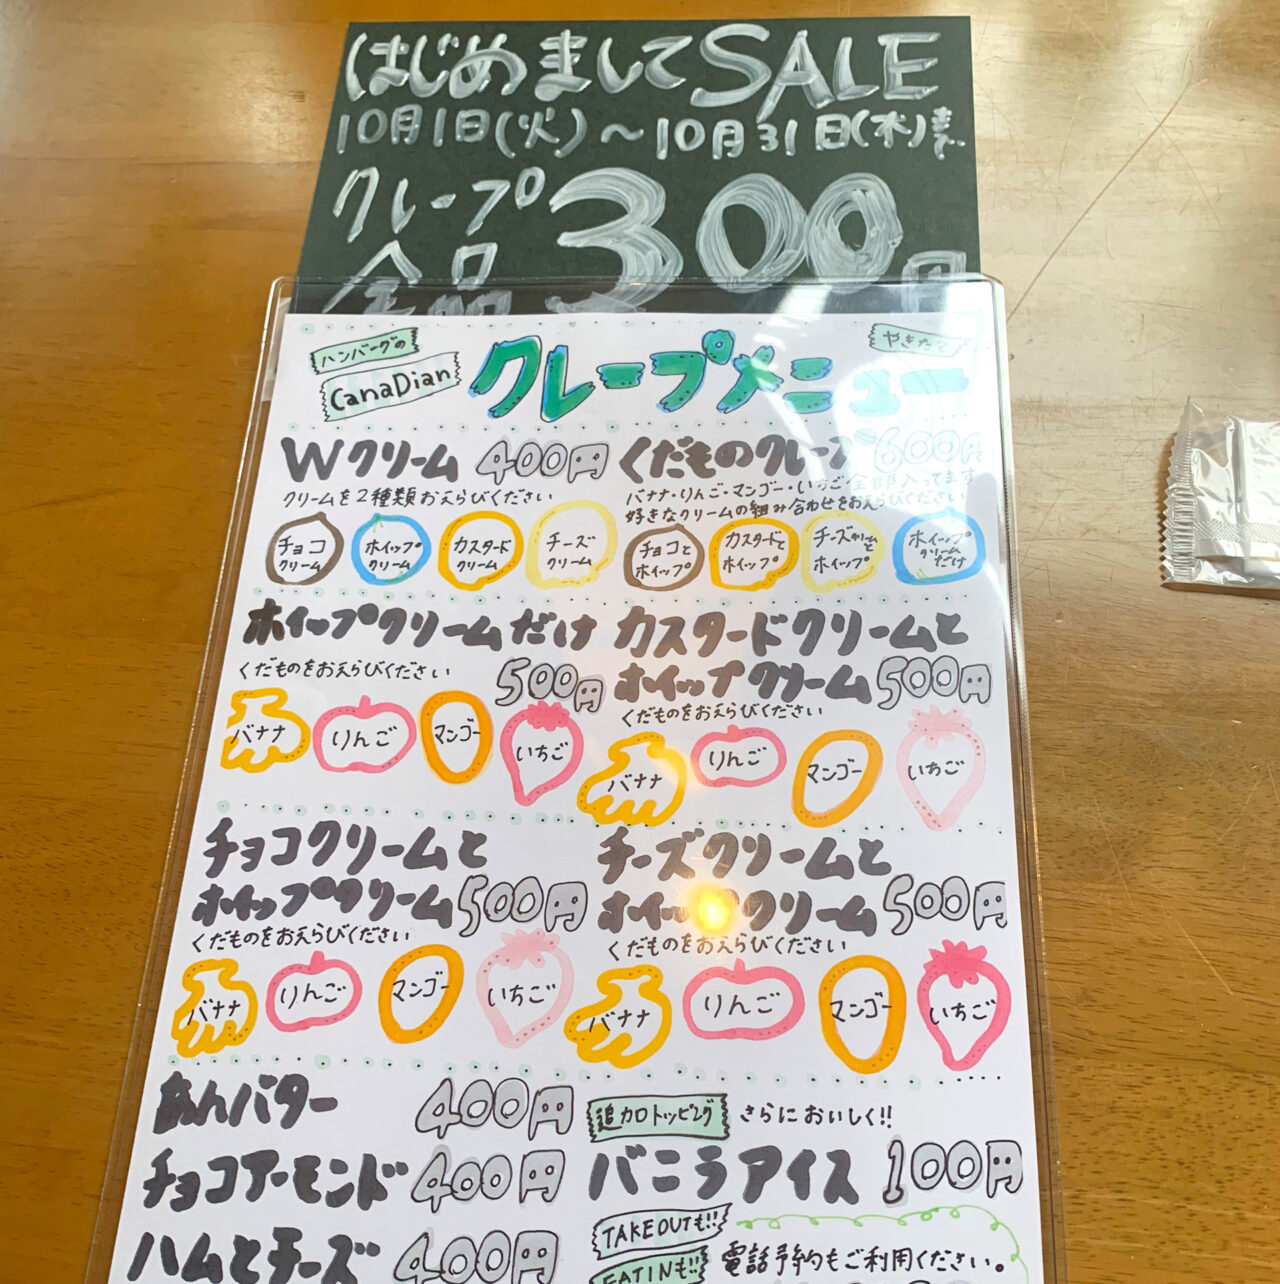 はじめましてSALE
10月1日(火)～10月31日(木)まで
クレープ
全品 300円
ハンバーグの
CanaDian
クレープメニュー
やきたて
Wクリーム 400円
クリームを2種類おえらびください
チョコ
クリーム
ホイップ
クリーム
カスタード
クリーム
チーズ
クリーム
くだものクレープ 600円
バナナ・りんご・マンゴー・いちご全部入ってます
好きなクリームの組み合わせをおえらびください
チョコと
ホイップ
カスタードと
ホイップ
チーズクリームと
ホイップ
ホイップ
クリーム
だけ
ホイップクリームだけ
くだものをおえらびください
500円
バナナ
りんご
マンゴー
いちご
カスタードクリームと
ホイップクリーム 500円
くだものをおえらびください
バナナ
りんご
マンゴー
いちご
チョコクリームと
ホイップクリーム 500円
くだものをおえらびください
バナナ
りんご
マンゴー
いちご
チーズクリームと
ホイップクリーム 500円
くだものをおえらびください
バナナ
りんご
マンゴー
いちご
あんバター 400円
チョコアーモンド 400円
ハムとチーズ 400円
追加トッピング さらにおいしく!!
バニラアイス 100円
TAKEOUTも!!
EATINも!!
電話予約もご利用ください。